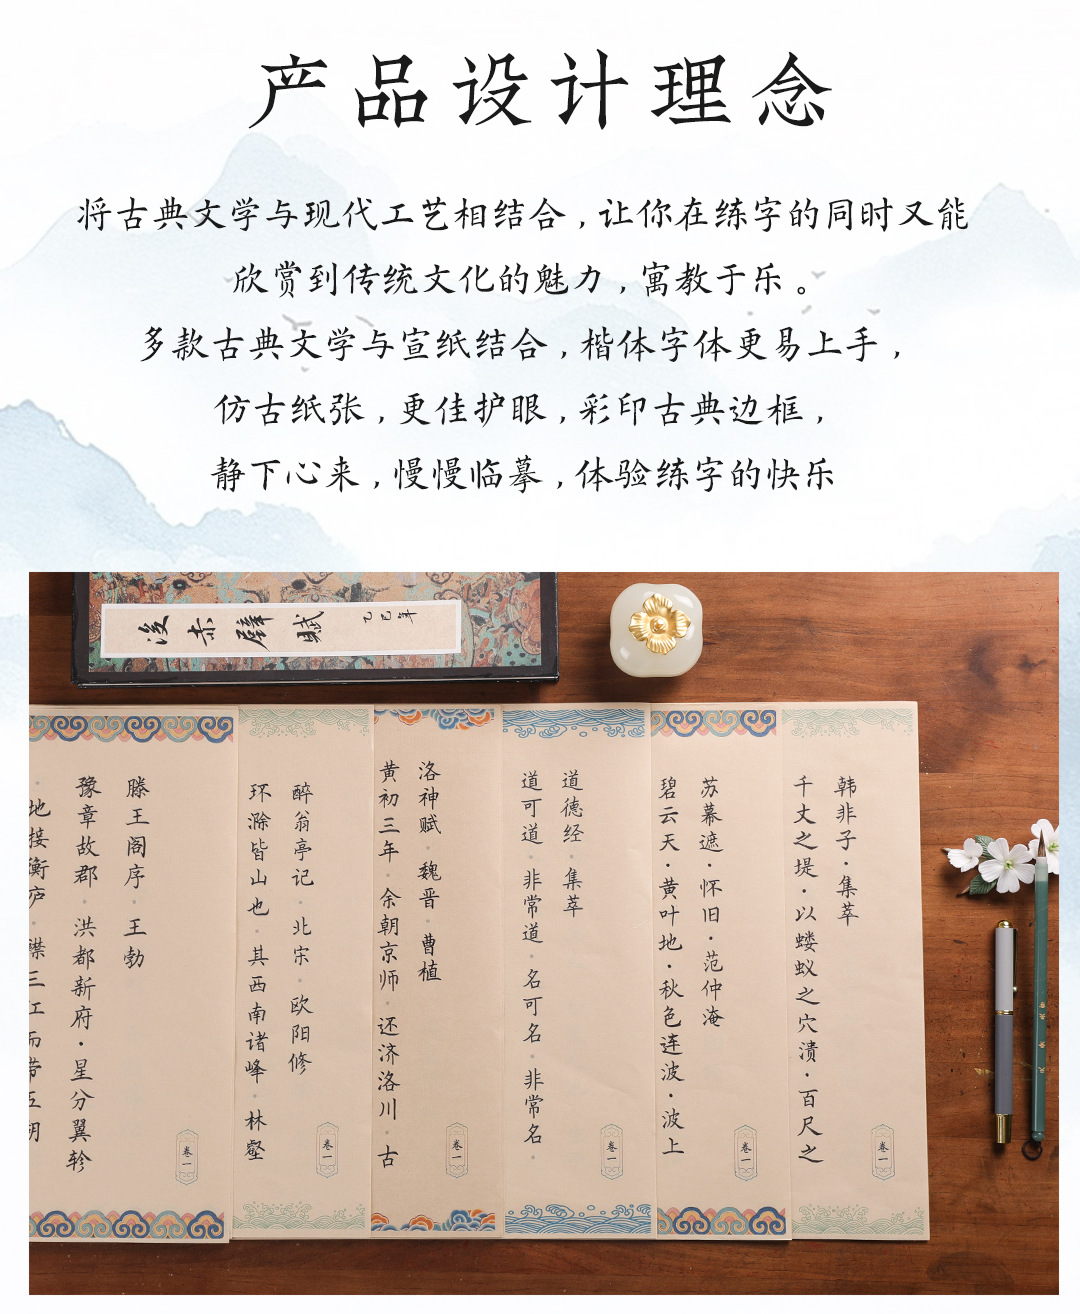 产品设计理念
将古典文学与现代工艺相结合,让你在练字的同时又能
欣赏到传统文化的魅力,寓教于乐。
多款古典文学与宣纸结合,楷体字体更易上手,
仿古纸张,更佳护眼,彩印古典边框,
静下心来,慢慢临摹,体验练字的快乐
后赤壁賦
乙巳年
韩非子·集萃
千丈之堤·以蝼蚁之穴溃·百尺之
卷一
苏幕遮·怀旧·范仲淹
碧云天·黄叶地·秋色连波·波上
卷一
道德经·集萃
道可道·非常道·名可名·非常名·
卷一
洛神赋·魏晋·曹植
黄初三年·余朝京师·还济洛川·古
卷一
醉翁亭记·北宋·欧阳修
环滁皆山也·其西南诸峰·林壑
卷一
滕王阁序·王勃
豫章故郡·洪都新府·星分翼轸
·地接衡庐·襟三江而带五湖
卷一